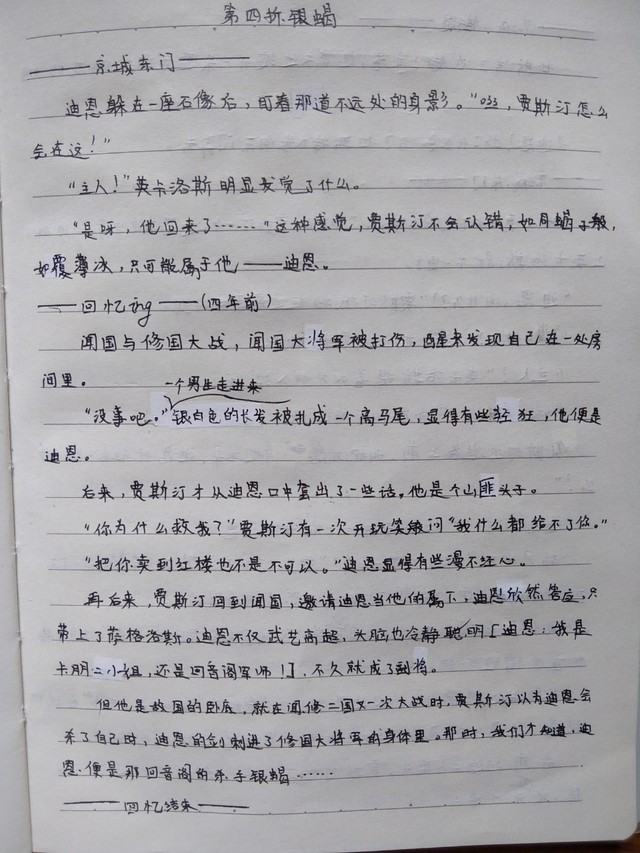 第四折银蝎
——京城东门——
迪恩躲在一座石像后，盯着那道不远处的身影。“oss，贾斯汀怎么
会在这！”
“主人！”英卡洛斯明显发觉了什么。
“是呀，他回来了……”这种感觉，贾斯汀不会认错，如月蝎子般，
如覆薄冰，只可能属于他——迪恩。
——回忆ing——(四年前)
闻国与修国大战，闻国大将军被打伤，醒来发现自己在一处房
间里。
一个男生走进来
“没事吧。”银白色的长发被扎成一个高马尾，显得有些轻狂，他便是
迪恩。
后来，贾斯汀才从迪恩口中套出了一些话。他是个山匪头子。
“你为什么救我？”贾斯汀有一次开玩笑般问“我什么都给不了你。”
“把你卖到红楼也不是不可以。”迪恩显得有些漫不经心。
再后来，贾斯汀回到闻国，邀请迪恩当他的属下，迪恩欣然答应，只
带上了萨格洛斯。迪恩不仅武艺高超，头脑也冷静聪明［迪恩：我是
卡朋二小组，还是回音阁军师！］，不久就成了副将。
但他是敌国的卧底，就在闻修二国又一次大战时，贾斯汀以为迪恩会
杀了自己时，迪恩的剑刺进了修国大将军的身体里。那时，我们才知道，迪
恩便是那回音阁的杀手银蝎……
——回忆结束——